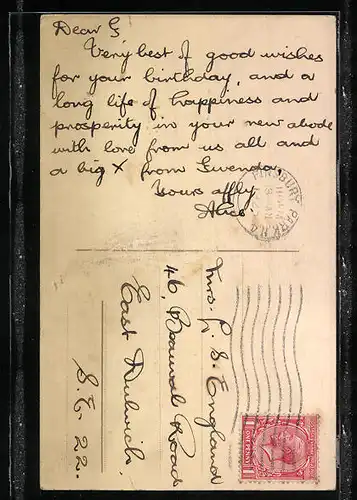 Dear G
Very best of good wishes
for your birthday, and a
long life of happiness and
prosperity in your new abode
with love from us all and
a big X from Gwenda,
Yours affly
Alice
FINSBURY PARK. N.4
Mrs G. S. England
46, Road
East Dulwich,
S.E. 22.
ONE PENNY